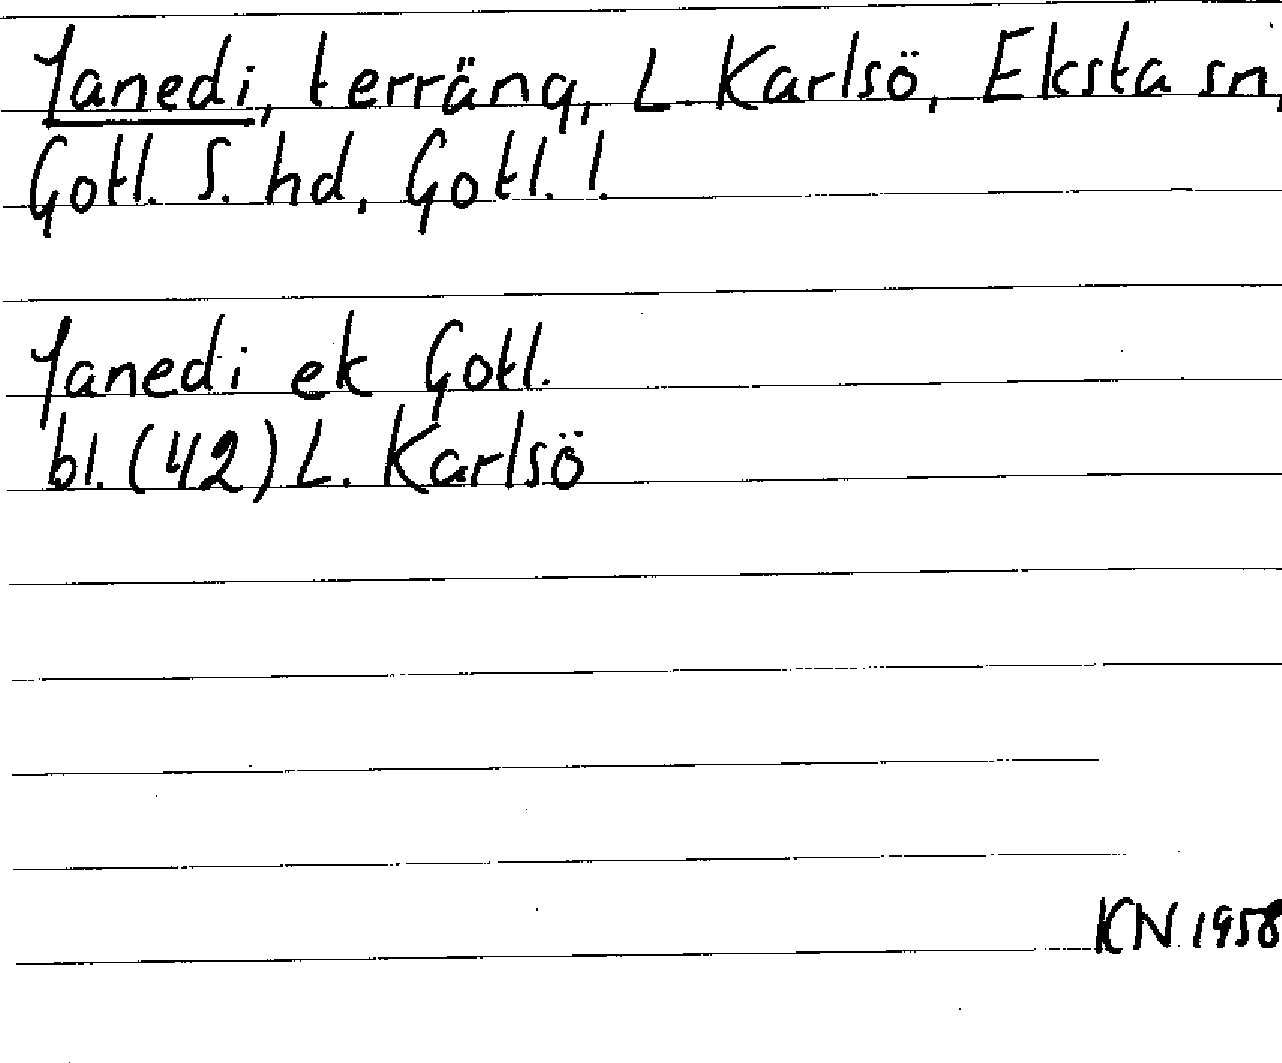 Janedi, terräng, L. Karlsö, Eksta sn,
Gotl. S. hd, Gotl. l.
Janedi ek Gotl.
bl. (42) L. Karlsö
KN 1958